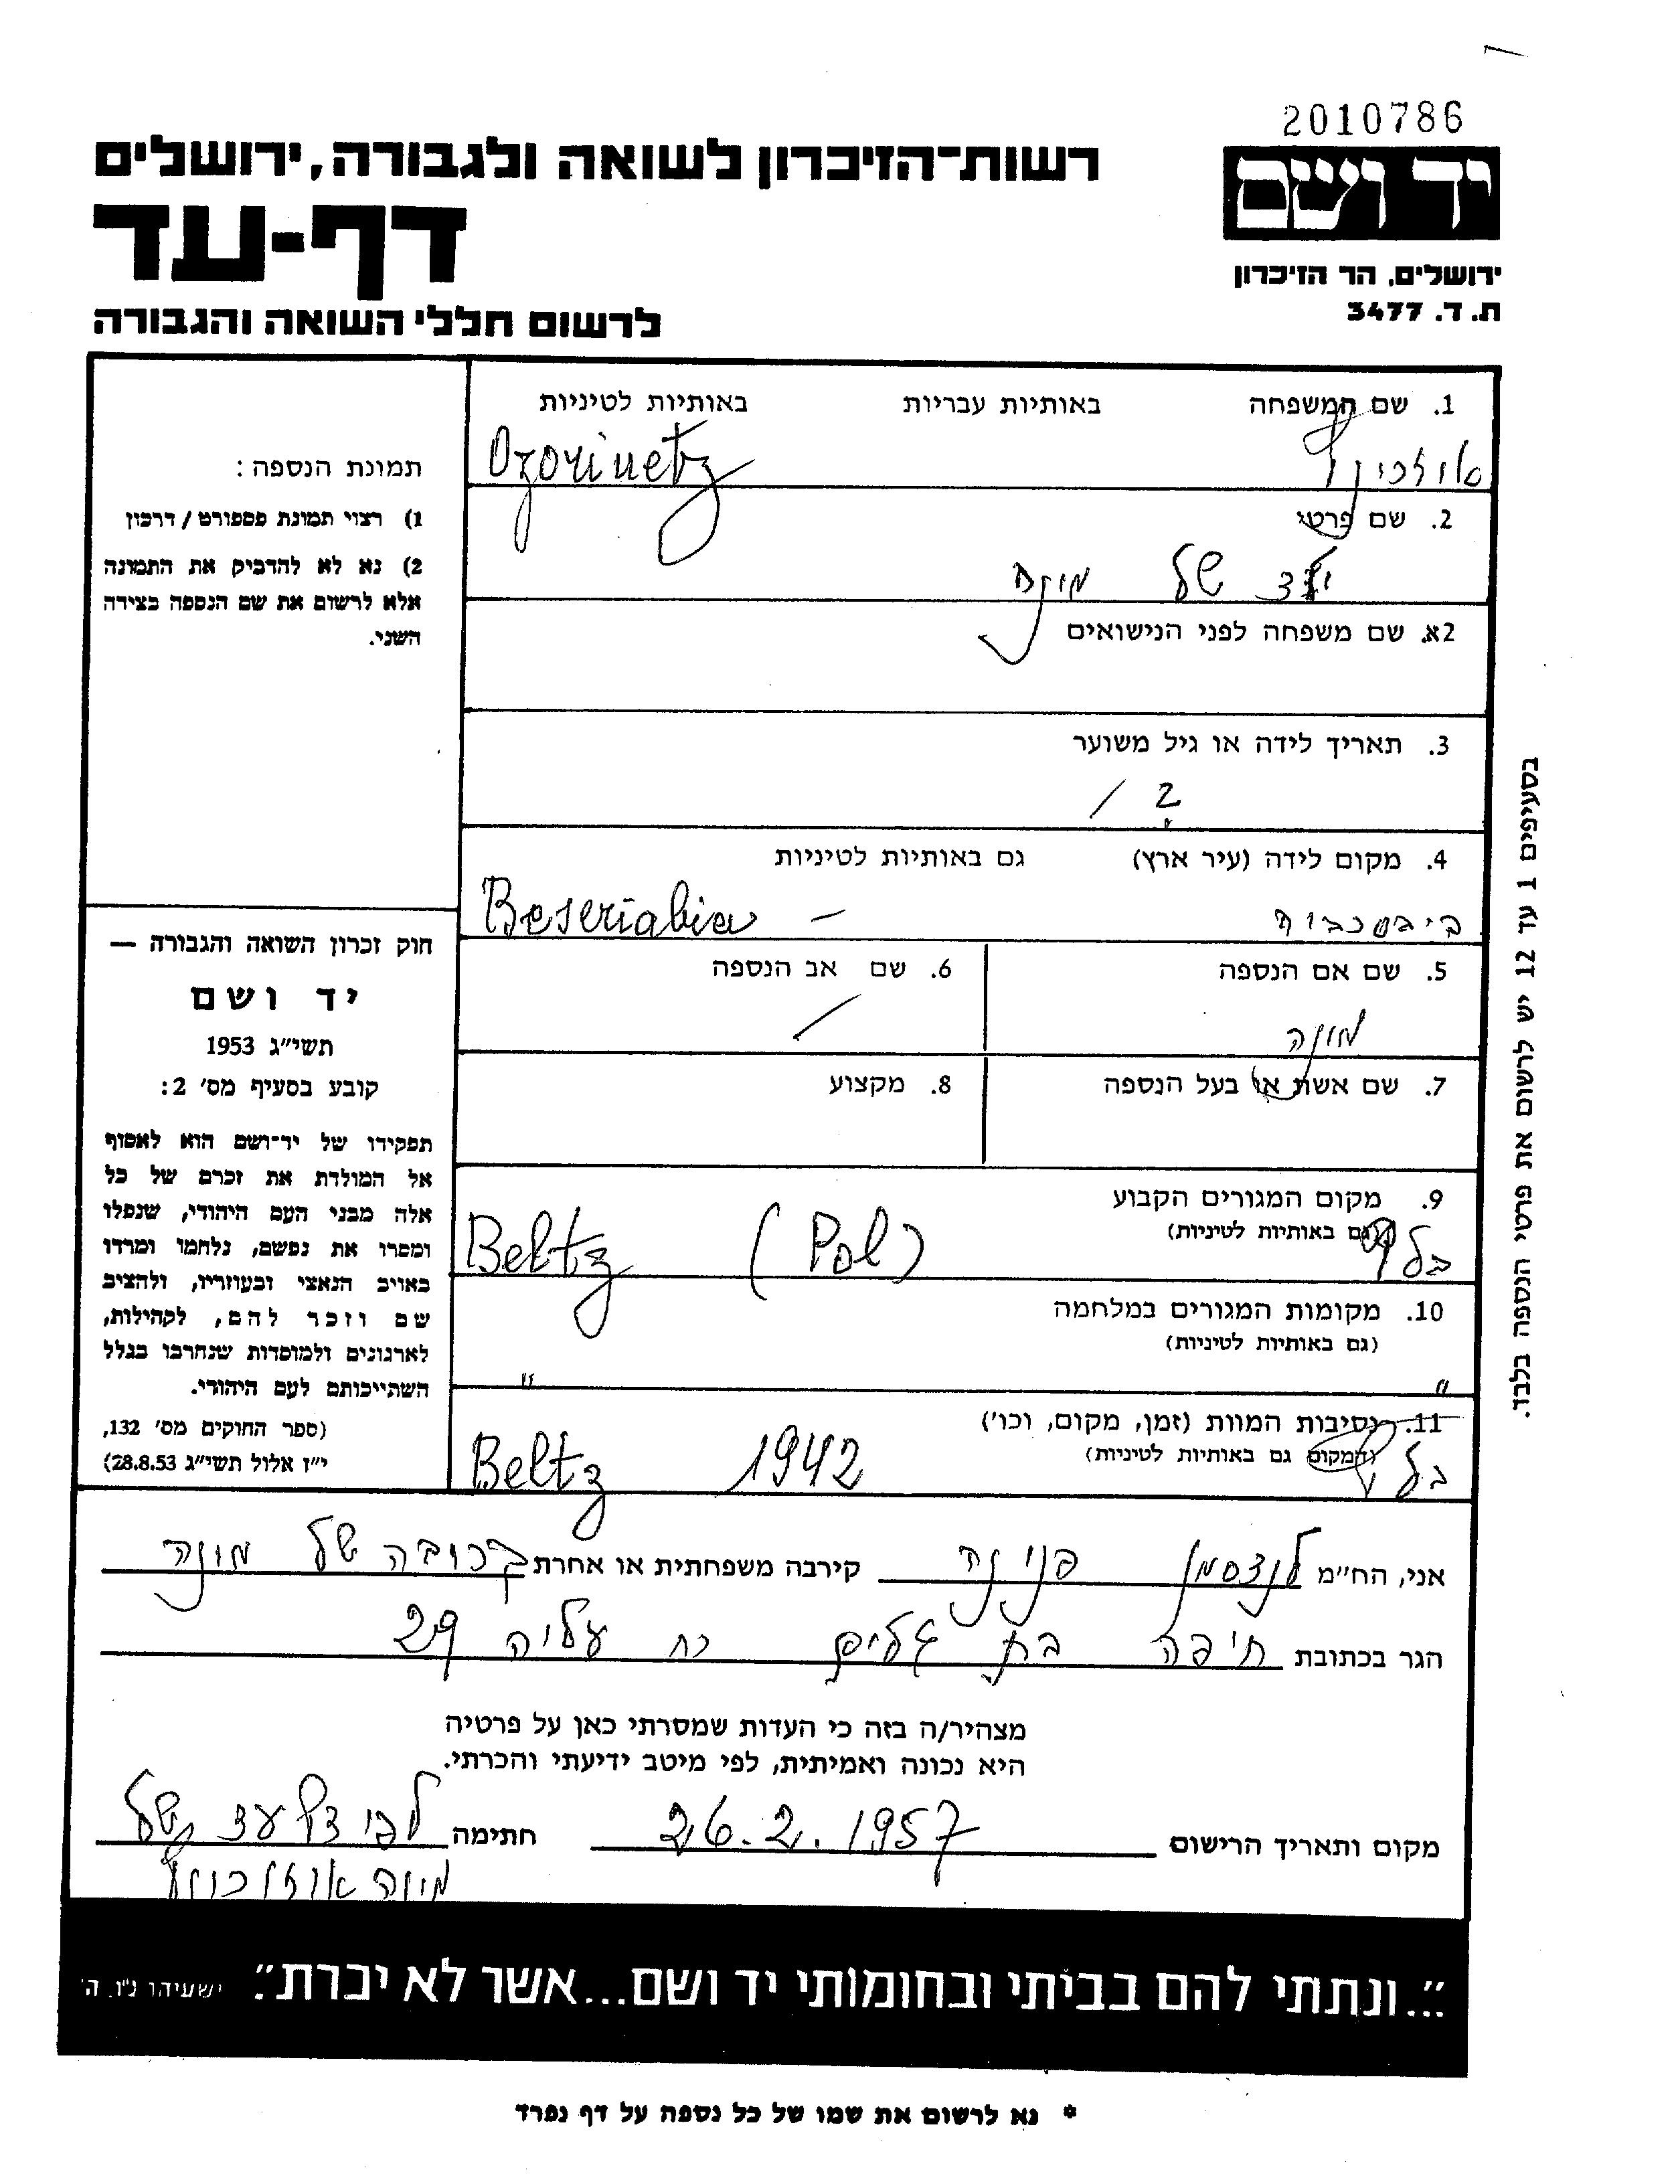 2010786
יד ושם
ירושלים, הר הזיכרון
ת. ד. 3477
רשות־הזיכרון לשואה ולגבורה, ירושלים
דף-עד
לרשום חללי השואה והגבורה
1. שם המשפחה באותיות עבריות באותיות לטיניות
Ozorinetz
2. שם פרטי
ילד של מונה
2א. שם משפחה לפני הנישואים
3. תאריך לידה או גיל משוער
2 /
4. מקום לידה (עיר ארץ) גם באותיות לטיניות
Beseriabia –
5. שם אם הנספה
מונה
6. שם אב הנספה
/
7. שם אשת או בעל הנספה
8. מקצוע
9. מקום המגורים הקבוע
(גם באותיות לטיניות)
בלץ Beltz (Pol)
10. מקומות המגורים במלחמה
(גם באותיות לטיניות)
" "
11. נסיבות המוות (זמן, מקום, וכו')
(המקום גם באותיות לטיניות)
בלץ Beltz 1942
תמונת הנספה:
1) רצוי תמונת פספורט / דרכון
2) נא לא להדביק את התמונה
אלא לרשום את שם הנספה בצידה
השני.
חוק זכרון השואה והגבורה —
יד ושם
תשי״ג 1953
קובע בסעיף מס׳ 2:
תפקידו של יד־ושם הוא לאסוף
אל המולדת את זכרם של כל
אלה מבני העם היהודי, שנפלו
ומסרו את נפשם, נלחמו ומרדו
באויב הנאצי ובעוזריו, ולהציב
שם וזכר להם, לקהילות,
לארגונים ולמוסדות שנחרבו בגלל
השתייכותם לעם היהודי.
(ספר החוקים מס׳ 132,
י״ז אלול תשי״ג 28.8.53)
בסעיפים 1 עד 12 יש לרשום את פרטי הנספה בלבד.
אני, הח״מ לנדסמן פנינה קירבה משפחתית או אחרת קרובה של מונה
הגר בכתובת חיפה בת גלים רח עליה 29
מצהיר/ה בזה כי העדות שמסרתי כאן על פרטיה
היא נכונה ואמיתית, לפי מיטב ידיעתי והכרתי.
מקום ותאריך הרישום 26.2.1957 חתימה לפי דף עד של
"...ונתתי להם בביתי ובחומותי יד ושם...אשר לא יכרת". ישעיהו נ״ו. ה׳
* נא לרשום את שמו של כל נספה על דף נפרד